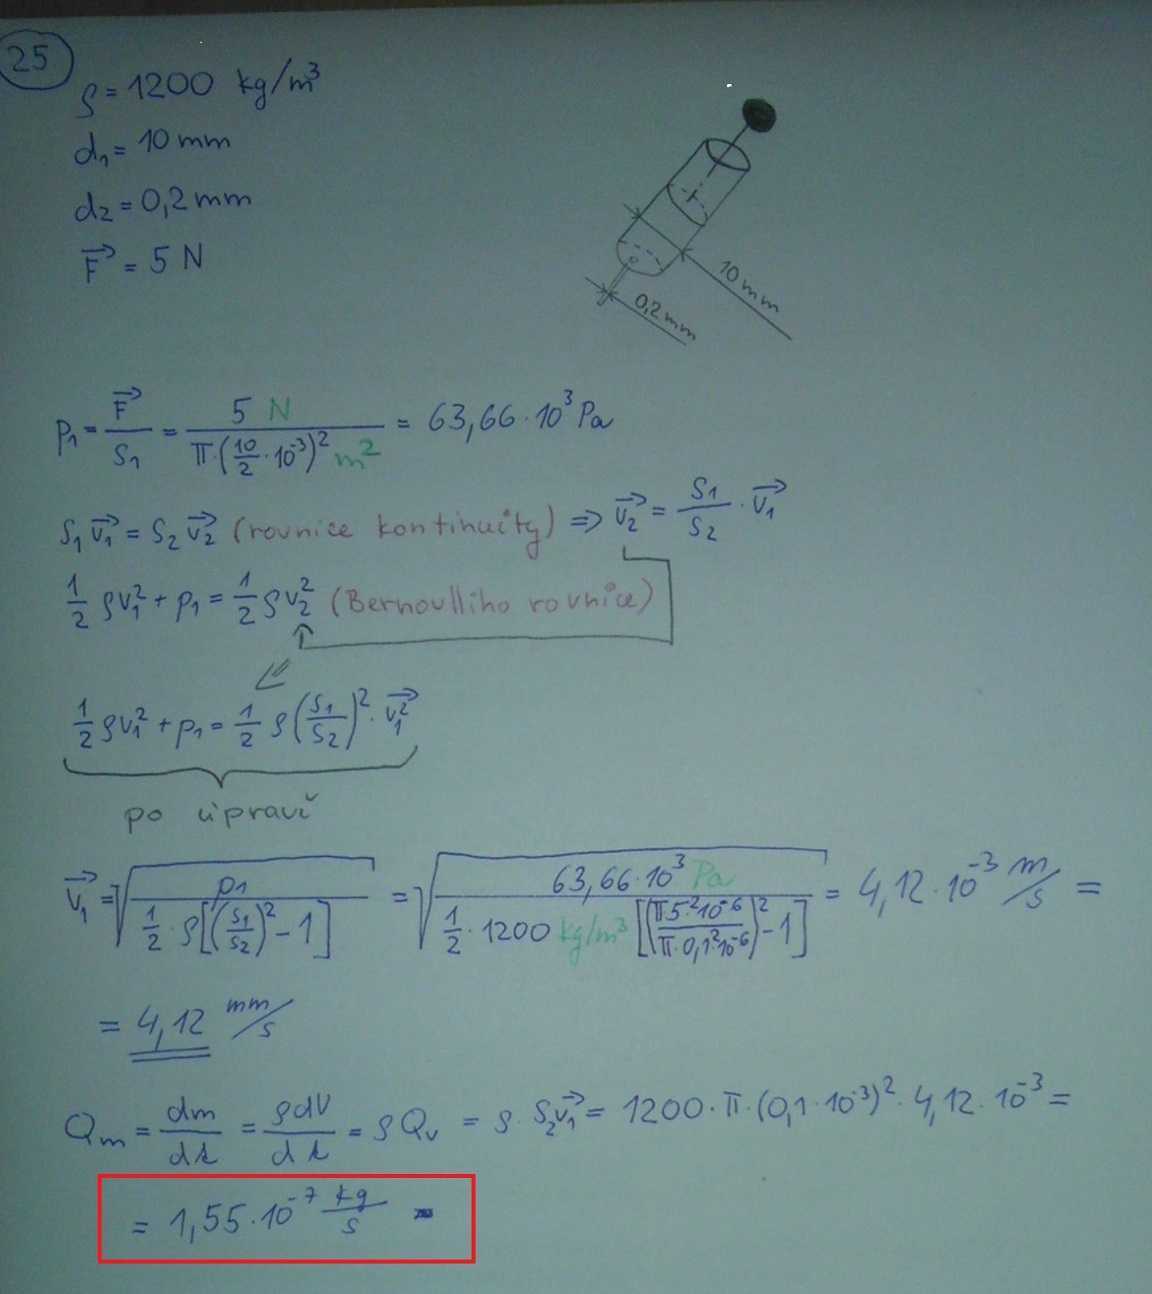 25
ρ = 1200 kg/m³
d₁ = 10 mm
d₂ = 0,2 mm
F⃗ = 5 N
10 mm
0,2 mm
p₁ = F⃗/S₁ = 5 N / π·(10/2·10⁻³)² m² = 63,66·10³ Pa
S₁v⃗₁ = S₂v⃗₂ (rovnice kontinuity) ⇒ v⃗₂ = S₁/S₂ · v⃗₁
1/2 ρv₁² + p₁ = 1/2 ρv₂² (Bernoulliho rovnice)
1/2 ρv₁² + p₁ = 1/2 ρ(S₁/S₂)² · v⃗₁²
po úpravě
v⃗₁ = √(p₁ / 1/2·ρ[(S₁/S₂)² − 1]) = √(63,66·10³ Pa / 1/2·1200 kg/m³ [(π·5²·10⁻⁶/π·0,1²·10⁻⁶)² − 1]) = 4,12·10⁻³ m/s =
= 4,12 mm/s
Qm = dm/dt = ρdV/dt = ρQv = ρ·S₂v⃗₁ = 1200·π·(0,1·10⁻³)²·4,12·10⁻³ =
= 1,55·10⁻⁷ kg/s